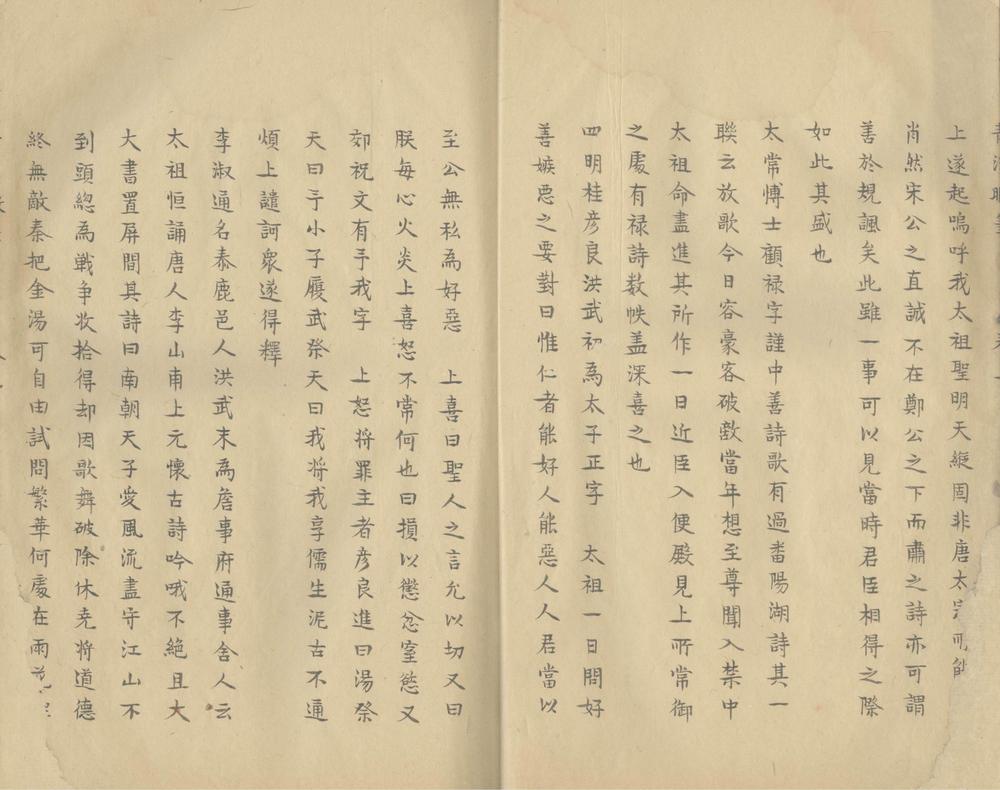 上遂起嗚呼我太祖聖明天縱固非唐太宗所能
肖然宋公之直誠不在鄭公之下而肅之詩亦可謂
善於規諷矣此雖一事可以見當時君臣相得之際
如此其盛也
太常愽士顧禄字謹中善詩歌有過畨陽湖詩其一
聯云放歌今日容豪客破敵當年想至尊聞入禁中
太祖命盡進其所作一日近臣入便殿見上所常御
之處有禄詩数帙盖深喜之也
四明桂彦良洪武初為太子正字　太祖一日問好
善嫉惡之要對曰惟仁者能好人能惡人人君當以
至公無私為好惡　上喜曰聖人之言允以切又曰
朕每心火炎上喜怒不常何也曰損以懲忿窒慾又
郊祝文有予我字　上怒将罪主者彦良進曰湯祭
天曰予小子履武祭天曰我将我享儒生泥古不通
煩上譴訶衆遂得釋
李淑通名泰鹿邑人洪武末為詹事府通事舍人云
太祖恒誦唐人李山甫上元懷古詩吟哦不絶且大
大書置屏間其詩曰南朝天子愛風流盡守江山不
到頭緫為戦争收拾得却因歌舞破除休尭将道德
終無敵秦把金湯可自由試問繁華何處在雨花